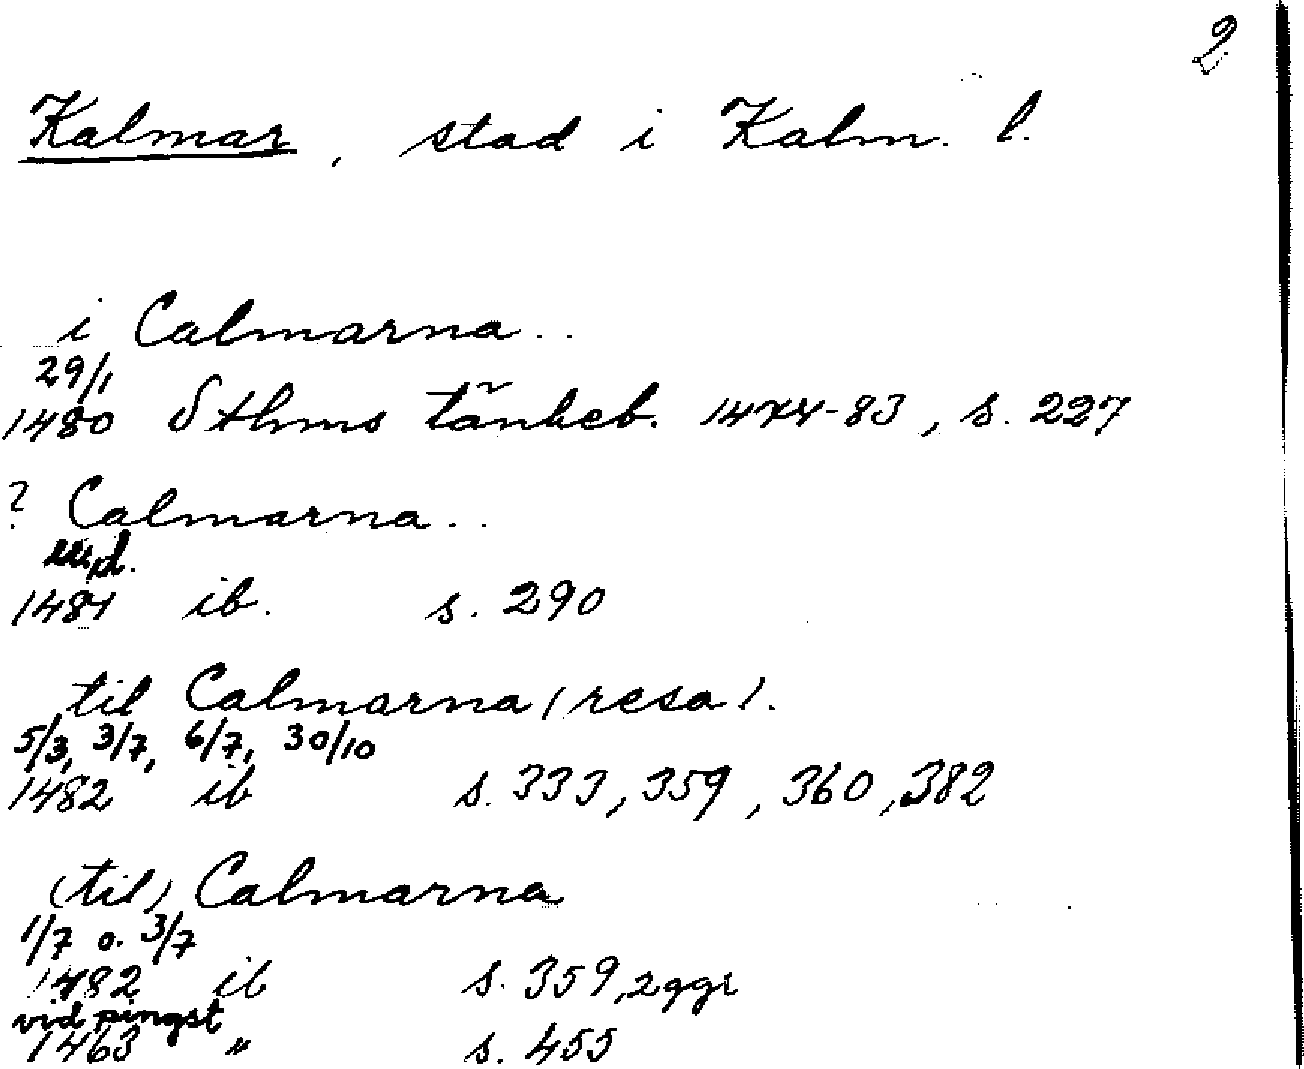 2
Kalmar, stad i Kalm. l.
i Calmarna..
29/1
1480 Sthms tänkeb. 1474-83, s. 227
? Calmarna..
1481 ib. s. 290
til Calmarna (resa).
5/3, 3/7, 6/7, 30/10
1482 ib s. 333, 359, 360, 382
(til) Calmarna
1/7 o. 3/7
1482 ib s. 359, 2 ggr
vid pingst
1463 " s. 455